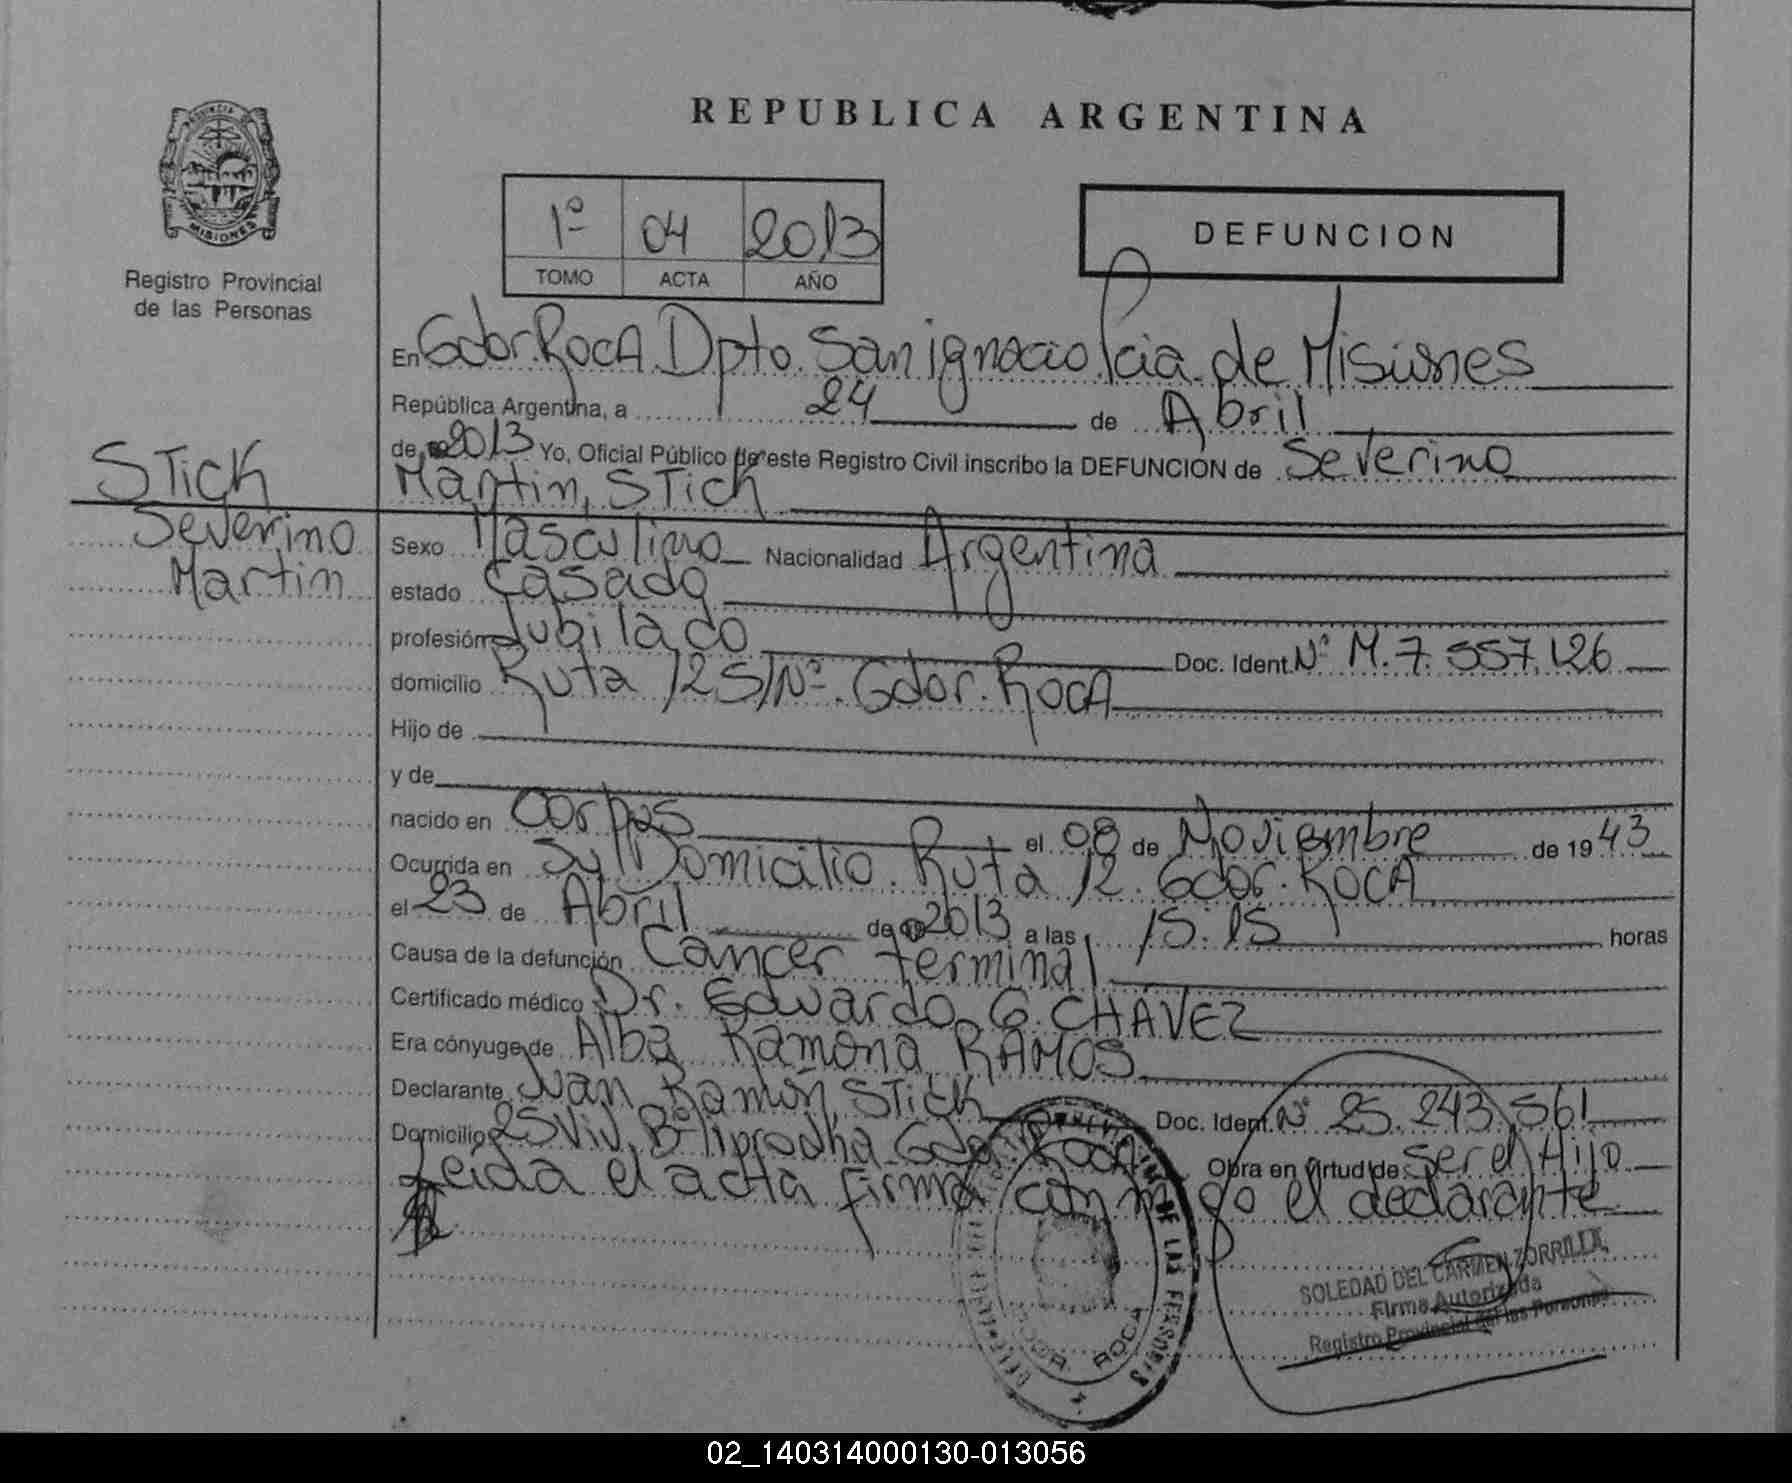 REPUBLICA ARGENTINA
PROVINCIA DE
MISIONES
Registro Provincial
de las Personas
1º 04 2013
TOMO ACTA AÑO
DEFUNCION
En Gdor. Roca Dpto. San ignacio Pcia de Misiones
República Argentina, a 24 de Abril
de 2013 Yo, Oficial Público de este Registro Civil inscribo la DEFUNCION de Severino
Martin, STick
STick
Severino
Martin
Sexo Masculino Nacionalidad Argentina
estado Casado
profesión Jubilado Doc. Ident. Nº M. 7.557.126
domicilio Ruta 12 S/Nº. Gdor. RocA
Hijo de
y de
nacido en Corpus el 08 de Noviembre de 1943
Ocurrida en Su Domicilio Ruta 12. Gdor. ROCA
el 23 de Abril de 2013 a las 15.15 horas
Causa de la defunción Cancer terminal
Certificado médico Dr. Eduardo G. CHÁVEZ
Era cónyuge de Alba Ramona RAMOS
Declarante Juan Ramón STick Doc. Ident. Nº 25.243.561
Domicilio 25 Viv. Bº Iprodha Gdor. RocA Obra en virtud de Ser el Hijo
Leida el acta firma conmigo el declarante
DE LAS PERSONAS
ROCA
SOLEDAD DEL CARMEN ZORRILLA
Firma Autorizada
Registro Provincial de las Personas
02_140314000130-013056